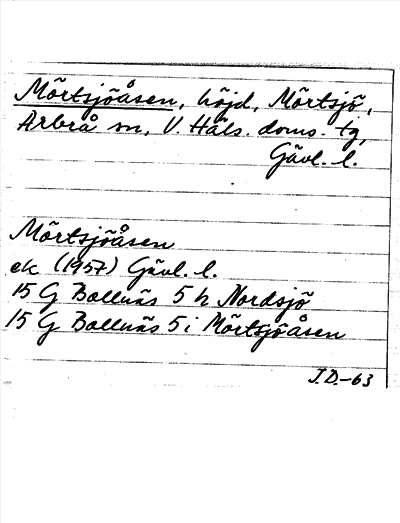 Mörtsjöåsen, höjd, Mörtsjö,
Arbrå sn, V. Häls. doms. tg,
Gävl. l.
Mörtsjöåsen
ek (1957) Gävl. l.
15 G Bollnäs 5 h Nordsjö
15 G Bollnäs 5 i Mörtsjöåsen
J.D.-63